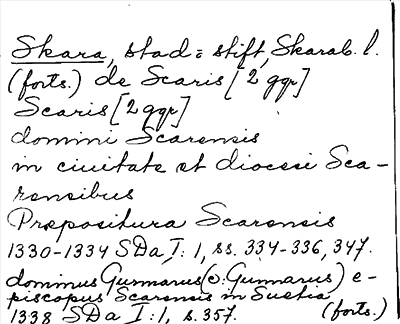 Skara, stad = stift, Skarab. l.
(forts.) de Scaris [2 ggr]
Scaris [2 ggr]
domini Scarensis
in ciuitate et diocesi Sca-
rensibus
Prepositura Scarensis
1330-1334 SDa I: 1, ss. 334-336, 347.
dominus Gunnarus (ɔ: Gunnarus) e-
piscopus Scarensis in Suetia
1338 SDa I:1, s. 357. (forts.)